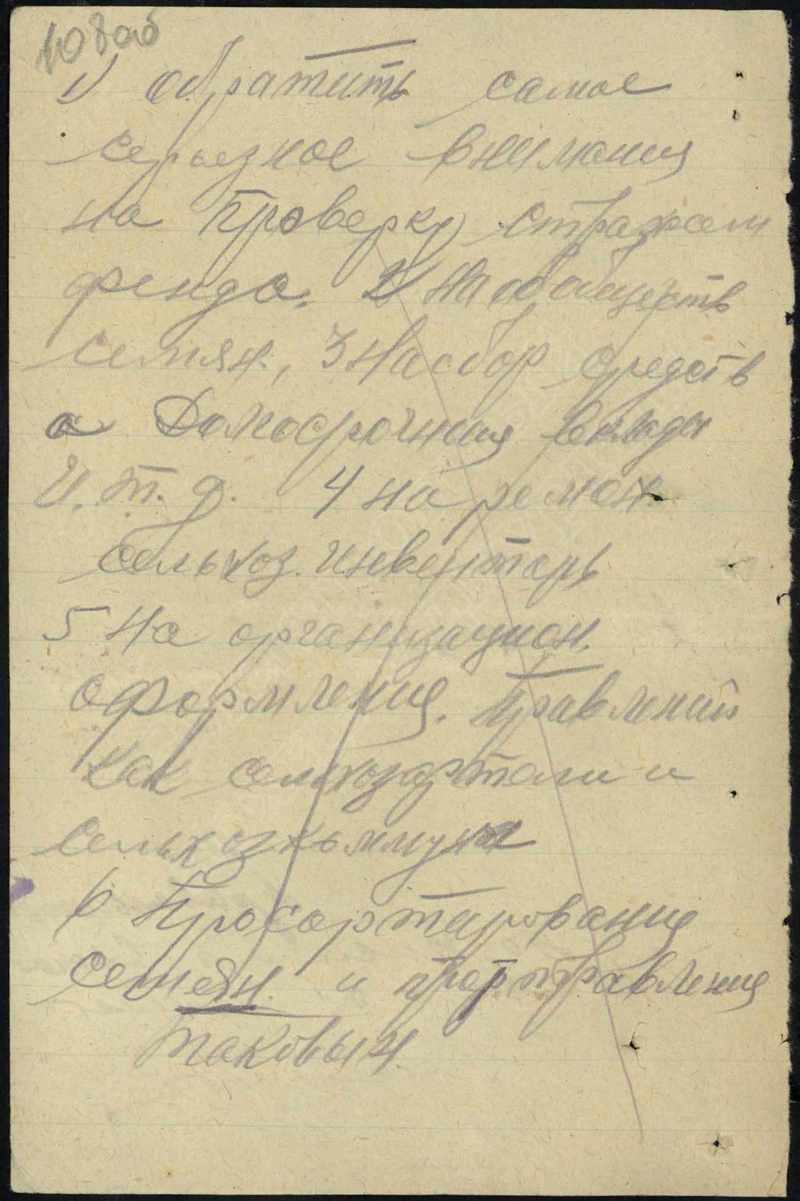 108об
1) обратить самое
серьезное внимания
на проверку страхсем
фонда. 2) На обобществ
семян., 3 На сбор средств
а Долгосрочная вклады
И.т.д. 4 на ремон.
сельхоз. инвентарь
5 На организацион.
оформления. Правлений
как сельхозартели и
сельхозкоммуны
6 Просортирования
семян. и протравления
таковых.